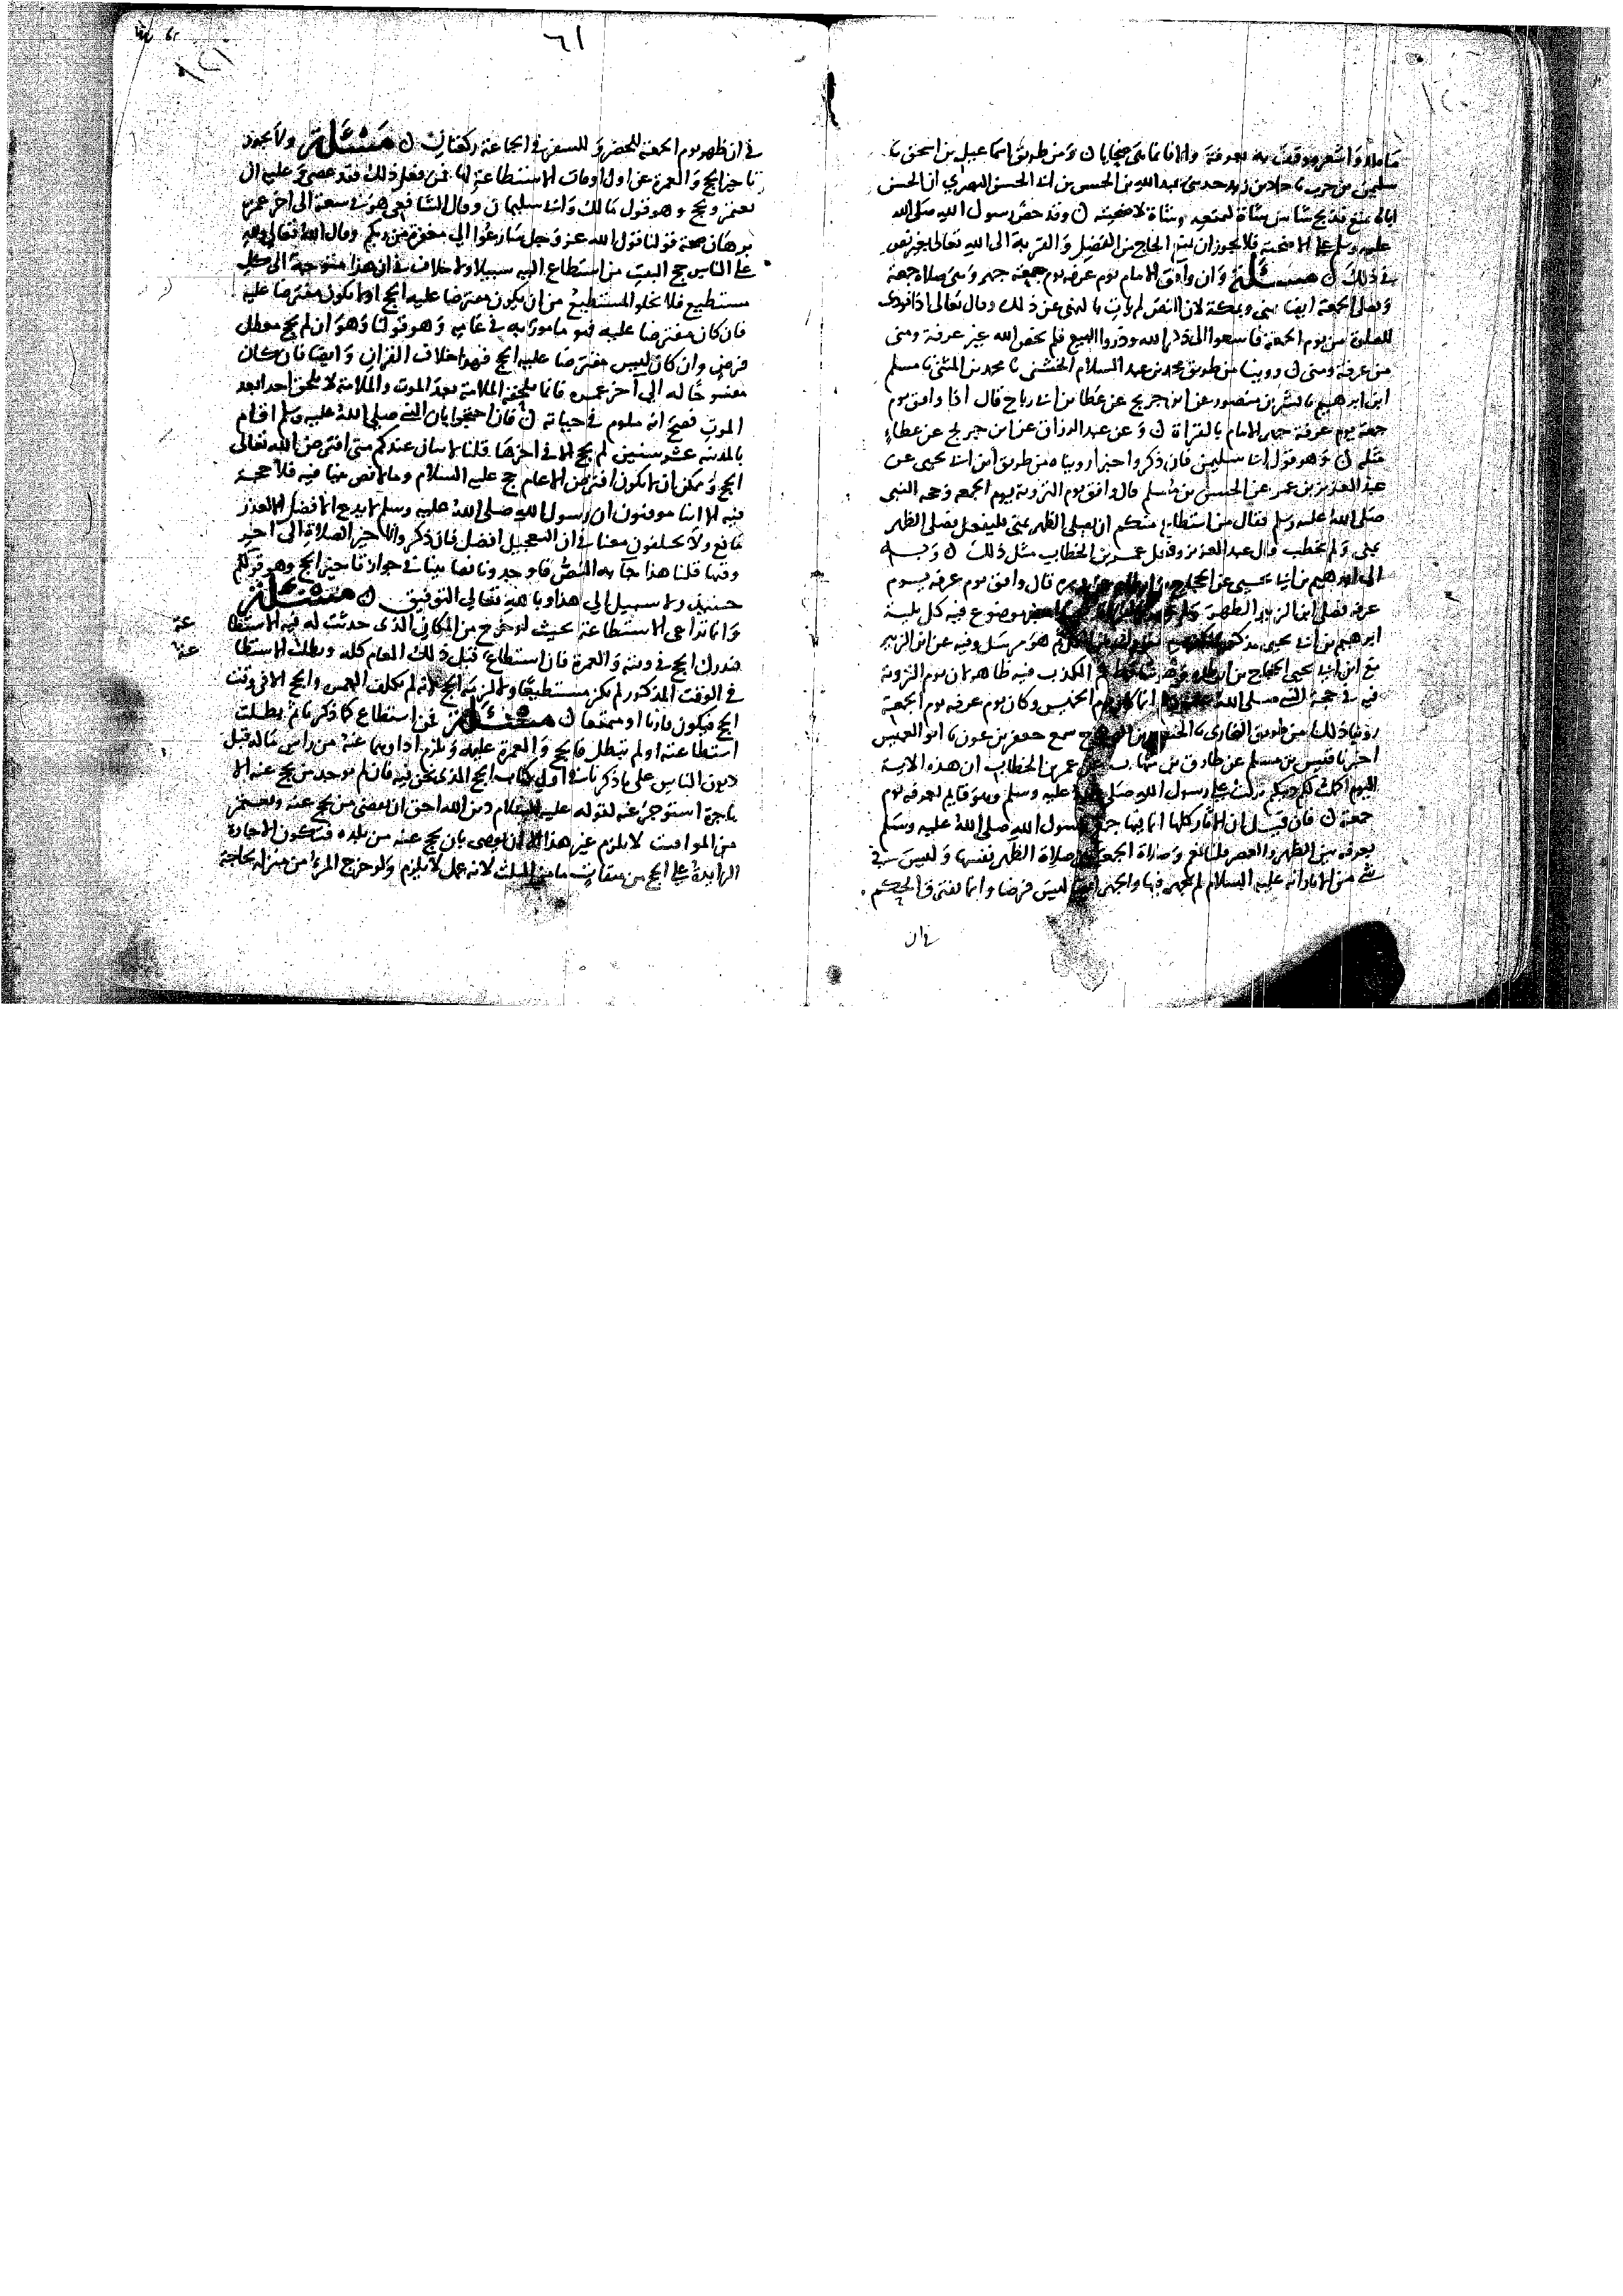 ما مله واشعر ووقف به بعرفة والا فانما هى ضحايا ن ومن طريق اسماعيل بن اسحق نا
سليمن بن حرب نا حماد بن زيد حدثنى عبد الله بن الحسن بن ابى الحسن البصرى ان الحسن
اباه تمتع فذبح شاتين شاة لمتعته وشاة لاضحيته ن وقد حض رسول الله صلى الله
عليه وسلم على الاضحية فلا يجوز ان يمنع الحاج من الفضل والقربة الى الله تعالى بغير نص
فى ذلك ن مسئلة وان وافق الامام يوم عرفه يوم جمعة جهر وهى صلاة جمعة
ويصلى الجمعة ايضا بمنى وبمكة لان النص لم يات بالنهى عن ذلك وقال تعالى اذا نودى
للصلوة من يوم الجمعة فاسعوا الى ذكر الله وذروا البيع فلم يخص الله غير عرفة ومنى
من عرفة ومنى ن وروينا من طريق محمد بن عبد السلام الخشنى نا محمد بن المثنى نا مسلم
ابن ابرهيم نا بشر بن منصور عن ابن جريج عن عطا بن ابى رباح قال اذا وافق يوم
جمعة يوم عرفة جهر الامام بالقراة ن وعن عبد الرزاق عن ابن جريج عن عطاء
مثله ن وهو قول ابى سليمن فان ذكروا خبرا رويناه من طريق ابن ابى يحيى عن
عبد العزيز بن عمر عن الحسن بن مسلم قال وافق يوم التروية يوم الجمعه وحجه النبى
صلى الله عليه وسلم فقال من استطاع منكم ان يصلى الظهر بمنى فليفعل فصلى الظهر
بمنى ولم يخطب قال عبد العزيز وفعل عمر بن الخطاب مثل ذلك ن وبه
الى ابرهيم بن ابى يحيى عن الحجاج قال وافق يوم عرفه يوم
عرفه فصلى ابن الزبير الظهر موضوع فيه كل بلية
ابرهيم بن ابى يحيى مذكور هو مرسل وفيه عن ابن الزبير
مع ابن ابى يحيى الحجاج بن ارطاه الكذب فيه ظاهر لان يوم التروية
فيه فى حجة النبى صلى الله انما كان يوم الخميس وكان يوم عرفه يوم الجمعة
روينا ذلك من طريق البخارى نا الحسن بن الصباح سمع جعفر بن عون نا ابو العميس
اخبرنا قيس بن مسلم عن طارق بن شهاب عن عمر بن الخطاب ان هذه الاية
اليوم اكملت لكم دينكم نزلت على رسول الله صلى الله عليه وسلم وهو قايم بعرفه يوم
جمعة ن فان قيل ان الاثار كلها انما فيها جمع رسول الله صلى الله عليه وسلم
بعرفه بين الظهر والعصر قلنا نعم وصلاة الجمعة صلاة الظهر نفسها وليس فى
شى من الاثار انه عليه السلام لم يجهر فيها والجهر ايضا ليس فرضا وانما يفترق الحكم
فى ان
٦١
فى ان ظهر يوم الجمعه للحضر وللسفر فى الجماعة ركعتان ن مسئلة ولا يجوز
تاخير الحج والعمرة عن اول اوقات الاستطاعة لهما فمن فعل ذلك فقد عصى وعليه ان
يعتمر ويحج وهو قول مالك وابى سليمان وقال الشافعى هو فى سعة الى اخر عمره
برهان صحة قولنا قول الله عز وجل سارعوا الى مغفرة من ربكم وقال الله تعالى ولله
على الناس حج البيت من استطاع اليه سبيلا ولا خلاف فى ان هذا متوجه الى كل
مستطيع فلا يخلو المستطيع من ان يكون مفترضا عليه الحج او لا يكون مفترضا عليه
فان كان مفترضا عليه فهو مامور به فى عامه وهو قولنا وهو ان لم يحج معطل
فرض وان كان ليس مفترضا عليه الحج فهذا خلاف القران وايضا فان كان
مفسوحا له الى اخر عمره فانما تلحقه الملامة بعد الموت والملامة لا تلحق احدا بعد
الموت فصح انه ملوم فى حياته ن فان احتجوا بان النبى صلى الله عليه وسلم اقام
بالمدينه عشر سنين لم يحج الا فى اخرها قلنا لا بيان عندكم متى افترض الله تعالى
الحج وممكن ان لا يكون افترض الا عام حج عليه السلام وما لا نص بينا فيه فلا حجة
فيه الا اننا موقنون ان رسول الله صلى الله عليه وسلم لا يدع الافضل الا لعذر
مانع ولا يختلفون معنا فى ان التعجيل افضل فان ذكروا تاخير الصلاة الى اخر
وقتها قلنا هذا جآ به النص فاوجدونا نصا بينا فى جواز تاخير الحج وهو قولكم
حينئذ ولا سبيل الى هذا وبالله تعالى التوفيق ن مسئلة
وانما تراعى الاستطاعة بحيث لو خرج من المكان الذى حدثت له فيه الاستطا عة
فيدرك الحج فى وقته والعمرة فان استطاع قبل ذلك العام كله وبطلت الاستطا عة
فى الوقت المذكور لم يكن مستطيعا ولا لزمه الحج لانه لم يكلف العمره والحج الا فى وقت
الحج فيكون قارنا او متمتعا ن مسئلة فمن استطاع كما ذكرنا ثم بطلت
استطاعته او لم تبطل فالحج والعمرة عليه ويلزم اداوهما عنه من راس ماله قبل
ديون الناس على ما ذكرنا فى اول كتاب الحج الذى نحن فيه فان لم يوجد من يحج عنه الا
باجرة استوجر عنه لقوله عليه السلام دين الله احق ان يقضى من يحج عنه ويعتمر
من المواقيت لا يلزم غير هذا الا ان يوصى بان يحج عنه من بلده فتكون الاجارة
الزايدة على الحج من ميقات ما من الثلث لانه عمل لا يلزم ولو خرج المرء من منزله يحاجة